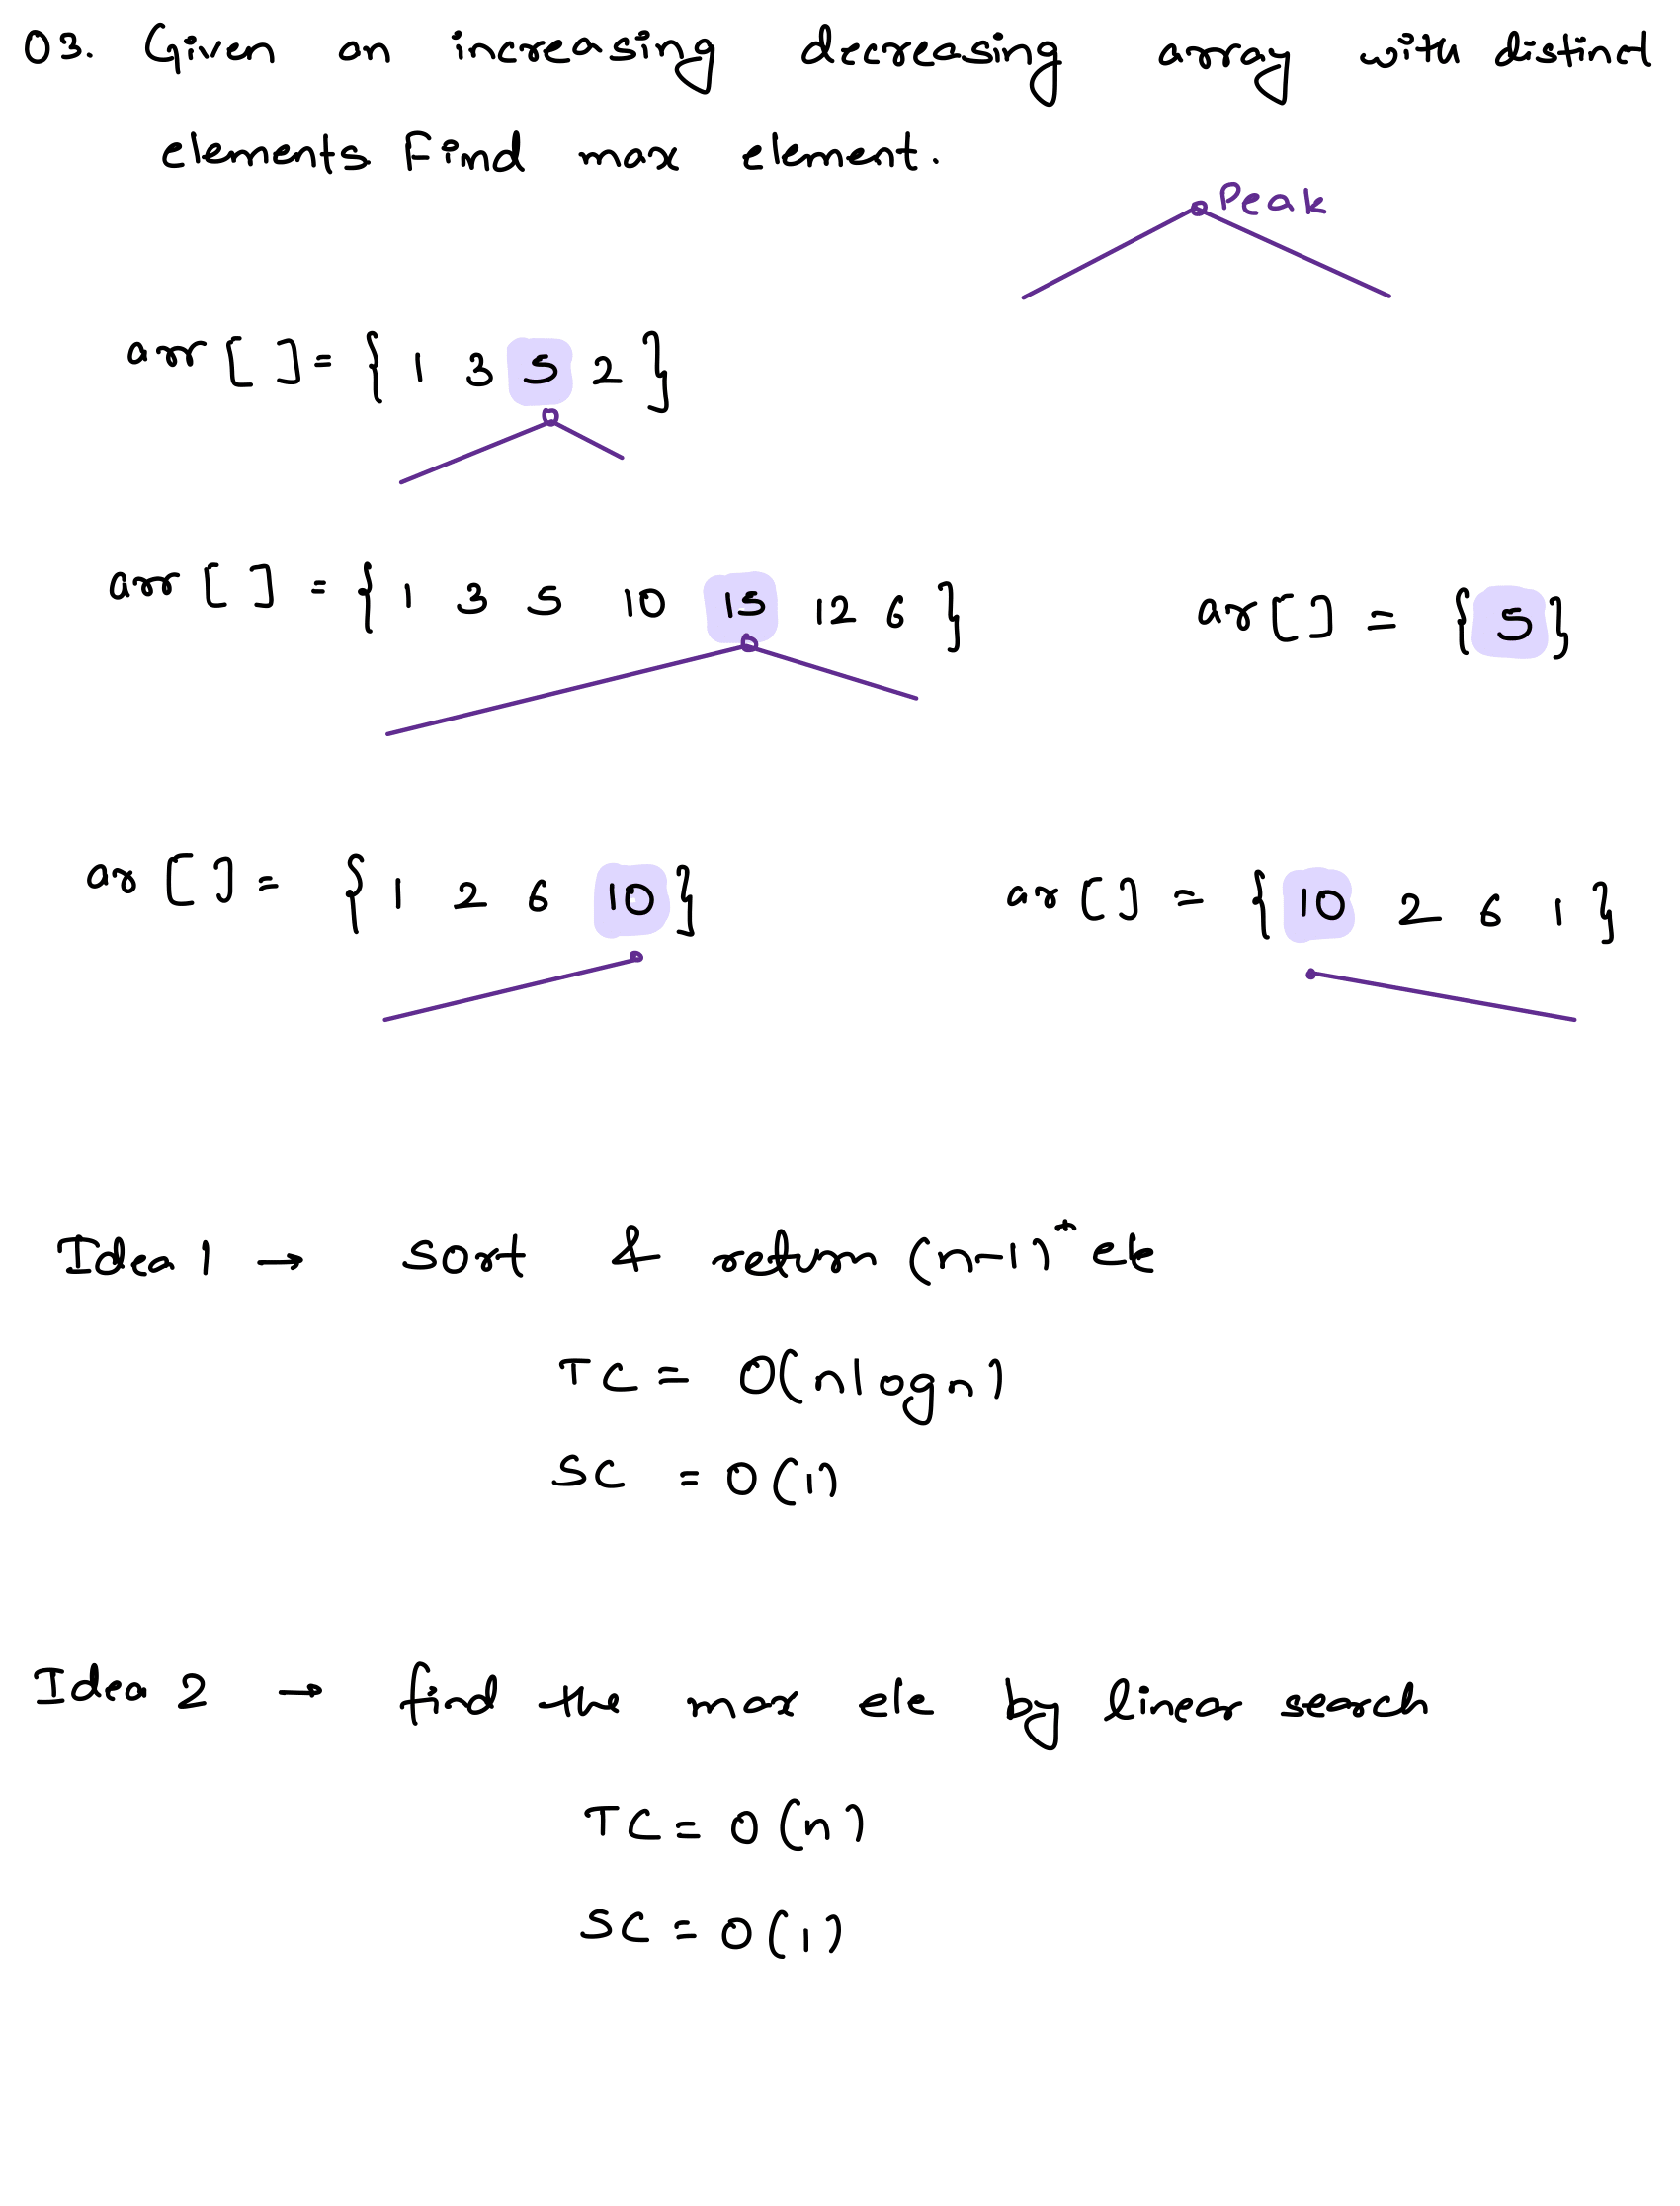 03. Given an increasing decreasing array with distinct
elements Find max element.
Peak
arr [ ] = { 1 3 5 2 }
arr [ ] = { 1 3 5 10 15 12 6 }
ar [ ] = { 5 }
ar [ ] = { 1 2 6 10 }
ar [ ] = { 10 2 6 1 }
Idea 1 → sort & return (n-1)th ele
TC = O(nlogn)
SC = O(1)
Idea 2 → find the max ele by linear search
TC = O(n)
SC = O(1)